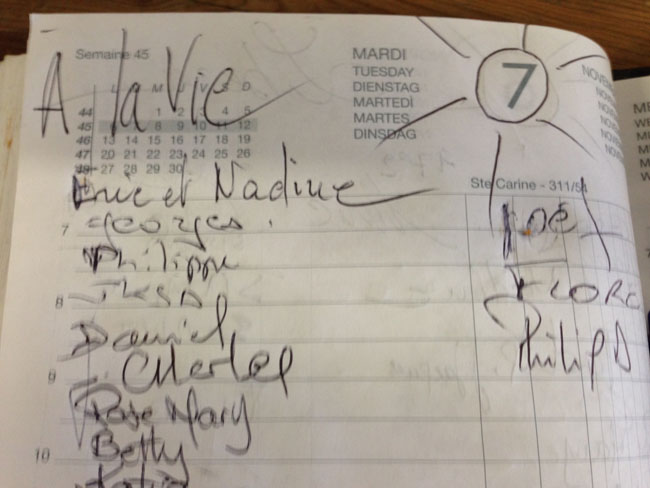 Semaine 45
MARDI
TUESDAY
DIENSTAG
MARTEDÌ
MARTES
DINSDAG
7
A la Vie
L M V S D
44 1 2 4 5
45 8 9 10 11 12
46 13 14 15 16 17 18 19
47 20 21 22 23 24 25 26
48 27 28 29 30
Ste Carine - 311/54
et Nadine
7 georges.
Philippe
8
Daniel
9 Charles
Rose Mary
Betty
10
Noé
Philip D